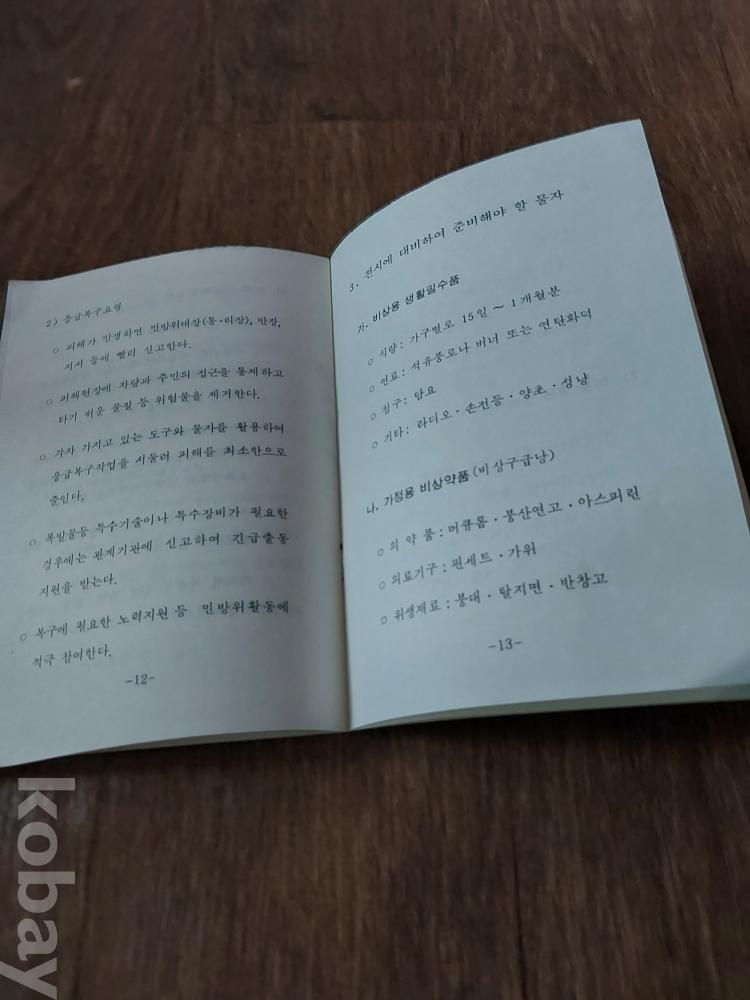 2) 응급복구요령
○ 피해가 발생하면 민방위대장(통·리장), 반장,
지서 등에 빨리 신고한다.
○ 피해현장에 차량과 주민의 접근을 통제하고
타기 쉬운 물질 등 위험물을 제거한다.
○ 각자 가지고 있는 도구와 물자를 활용하여
응급복구작업을 서둘러 피해를 최소한으로
줄인다.
○ 폭발물등 특수기술이나 특수장비가 필요한
경우에는 관계기관에 신고하여 긴급출동
지원을 받는다.
○ 복구에 필요한 노력지원 등 민방위활동에
적극 참여한다.
-12-
3. 전시에 대비하여 준비해야 할 물자
가. 비상용 생활필수품
○ 식량: 가구별로 15일 ~ 1개월분
○ 연료: 석유풍로나 버너 또는 연탄화덕
○ 침구: 담요
○ 기타: 라디오·손전등·양초·성냥
나. 가정용 비상약품(비상구급낭)
○ 의 약 품: 머큐롬·붕산연고·아스피린
○ 의료기구: 핀세트·가위
○ 위생재료: 붕대·탈지면·반창고
-13-
kobay